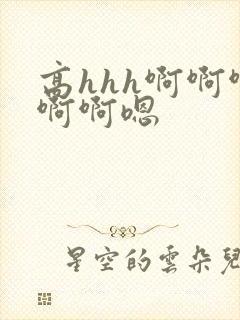 高hhh啊啊
啊啊嗯
星空的雲朵